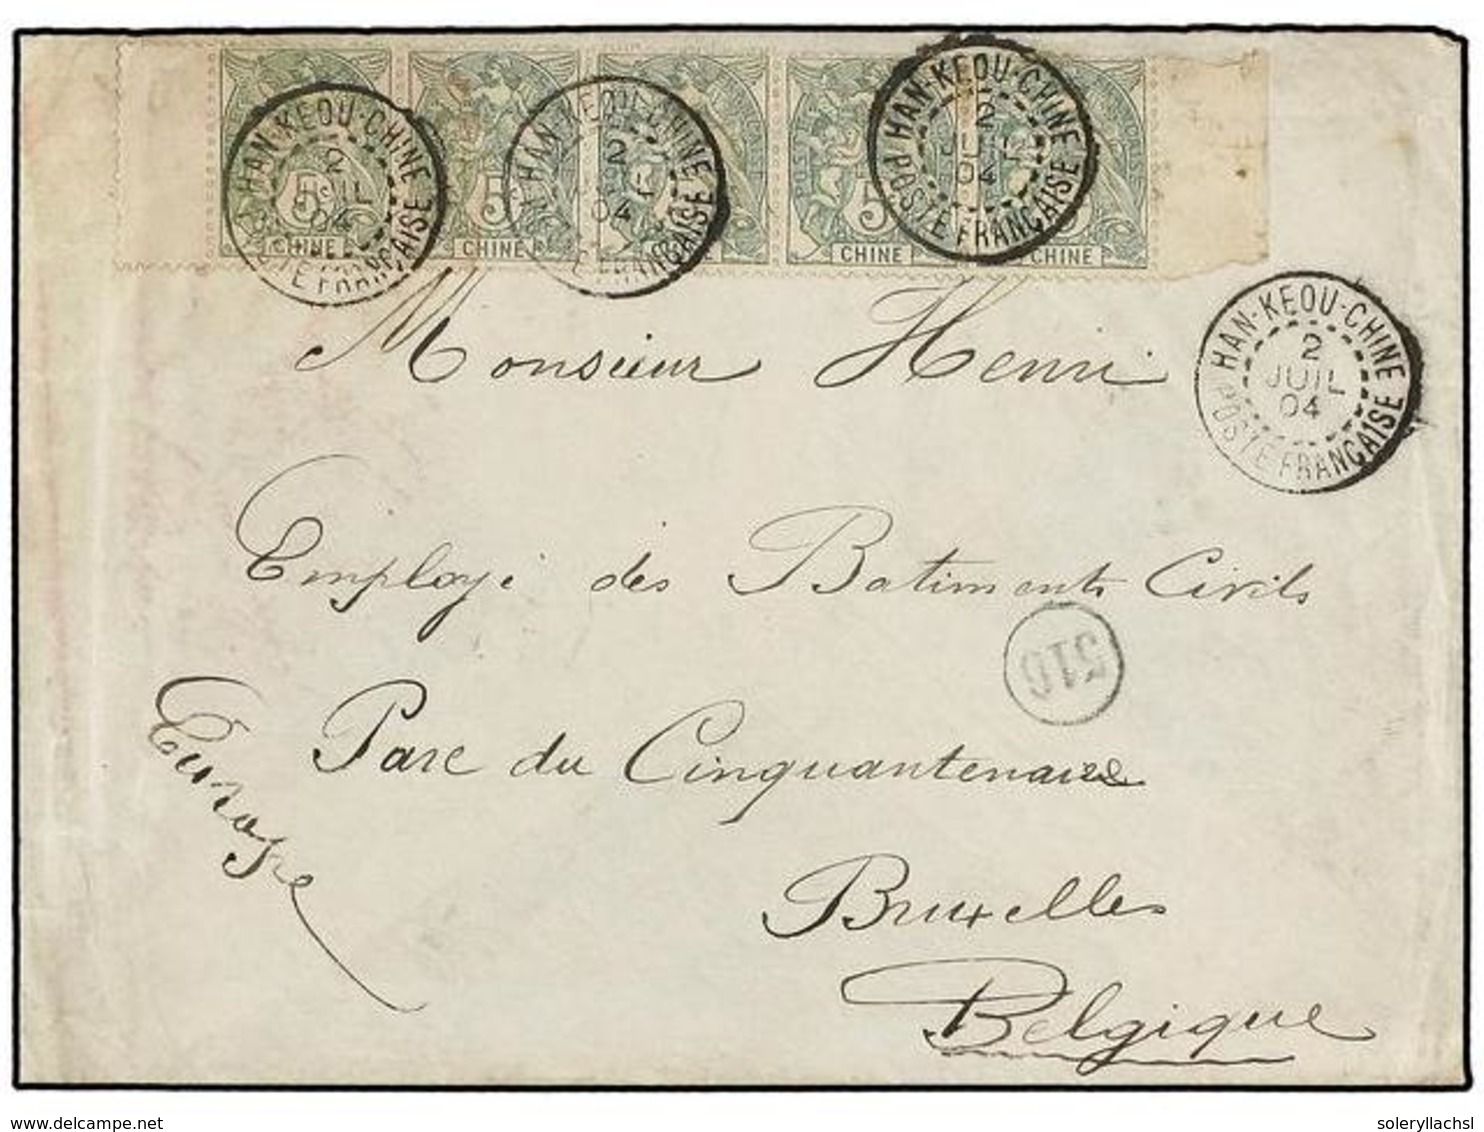 5 CHINE
5 CHINE
5 CHINE
HAN-KEOU-CHINE 2 JUIL 04 POSTE FRANÇAISE
HAN-KEOU-CHINE 2 JUIL 04 POSTE FRANÇAISE
HAN-KEOU-CHINE 2 JUIL 04 POSTE FRANÇAISE
HAN-KEOU-CHINE 2 JUIL 04 POSTE FRANÇAISE
Monsieur Henri
Employé des Batiments Civils
516
Parc du Cinquantenaire
Europe
Bruxelles
Belgique
delcampe.net
soleryllachsl